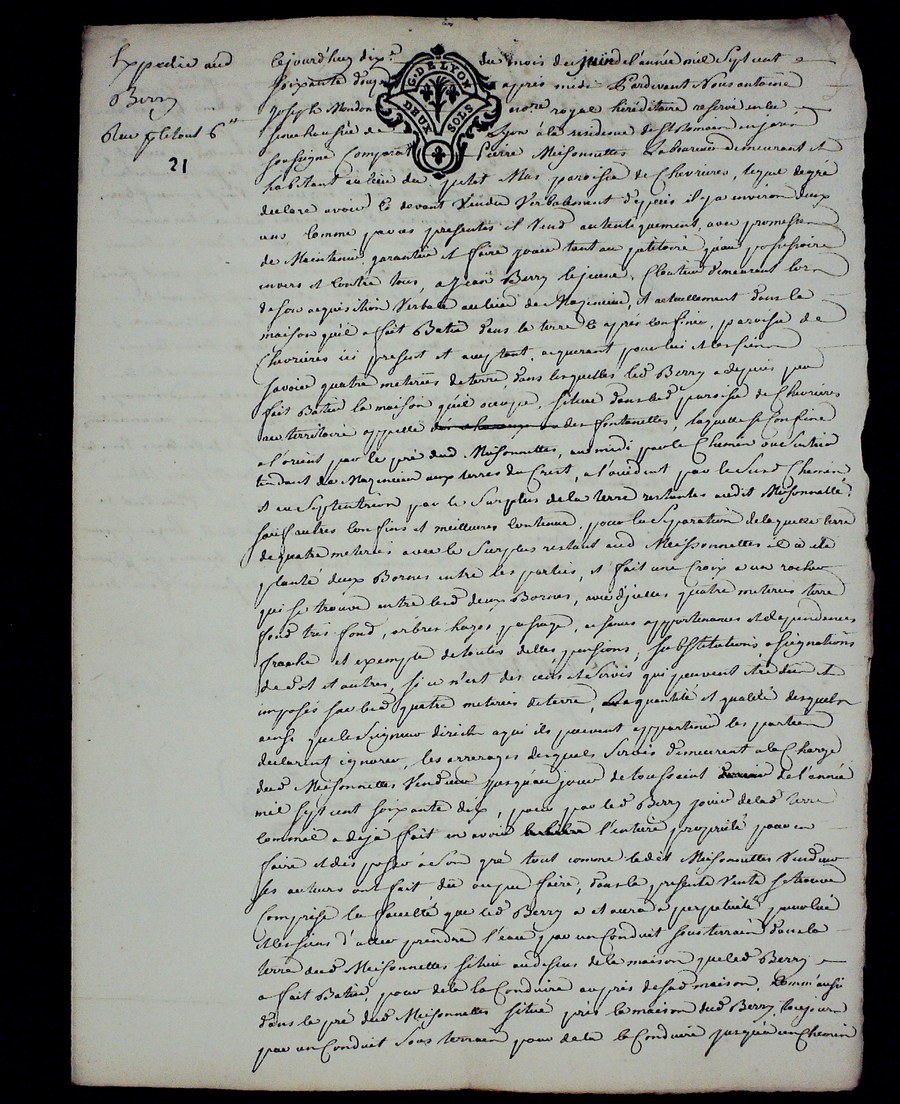 Expedié aud
Berry
21
Cejourd'huy dix.e
G. DE LYON
DEUX SOLS
du mois de juin l'année mil sept cent
soixante douze
après midi Pardevant Nous antoine
Joseph Mondon
notre royal héréditaire reservé en la
senechaussée de
Lyon à la residence de St Romain en jarés
soussigné Comparait
Pierre Meisonnettes Laboureur demeurant et
habitant au lieu du petit Mas paroisse de Chevrieres, lequel de gré
declare avoir cy devant Vendu Verbalement depuis il y a environ deux
ans comme par ces presentes il Vend autentiquement, avec promesse
de Maintenir, garantir et faire jouir tant au petitoire qu'au possessoire
envers et contre tous, a Jean Berry le jeune, Cloutier demeurant lors
de son acquisition Verbale au lieu de Mazenieu, et actuellement dans la
maison qu'il a fait Batir dans la terre cy après confinée, paroisse de
Chevrières ici present et acceptant, acquerant pour lui et les siens
Savoir quatre meterées de terre dans lesquelles led Berry a depuis peu
fait Batir la maison qu'il occupe, située dans lad paroisse de Chevrieres
au territoire appellé des fontanettes, laquelle se confine
a l'orient par le pré dud Meisonnettes, au midi par le Chemin
tendant de Mazenieu aux terres du Cret, a l'occident par le susd Chemin
et au Septentrion par le Surplus de la terre restante audit Meisonnettes
sauf autres confins et meilleure contenue, pour la Separation de laquelle terre
de quatre meterées avec le Surplus restant aud Meisonnettes il a été
planté deux Bornes entre les parties, et fait une Croix a un rocher
qui se trouve entre lesd deux Bornes, avec d'icelles quatre meterées terre
fond très fond, arbres hayes passage, aisances appartenances et dependances
franche et exempte de toutes dettes pensions, substitutions assignations
de dot et autres, si ce n'est des cens et Servis qui peuvent être dus et
imposés sur lesd quatre meterées de terre, la quantité et qualité desquels
ainsi que le Seigneur direct a qui ils peuvent appartenir les parties
declarent ignorer, les arrerages desquels Servis demeurent a la Charge
dud Meisonnettes Vendeur jusqu'au jour de toussaint de l'année
mil sept cent soixante dix, pour par led Berry jouir de lad terre
comme il a déjà fait en avoir l'entiere propriété pour en
faire et disposer à son gré tout comme ledit Meisonnettes Vendeur
ses auteurs ont fait du ou pu faire, dans la presente Vente se trouve
Comprise la faculté que led Berry a et aura a perpetuité pour lui
et les siens d'aller prendre l'eau par un Conduit souterrain dans la
terre dud Meisonnettes située au dessus de la maison que led Berry
a fait Batir, pour de la la Conduire auprès de sad maison, Comm'aussi
dans le pré dud Meisonnettes situé près la maison dud Berry toujours
par un Conduit Sous terrain pour de la la Conduire jusqu'au Chemin